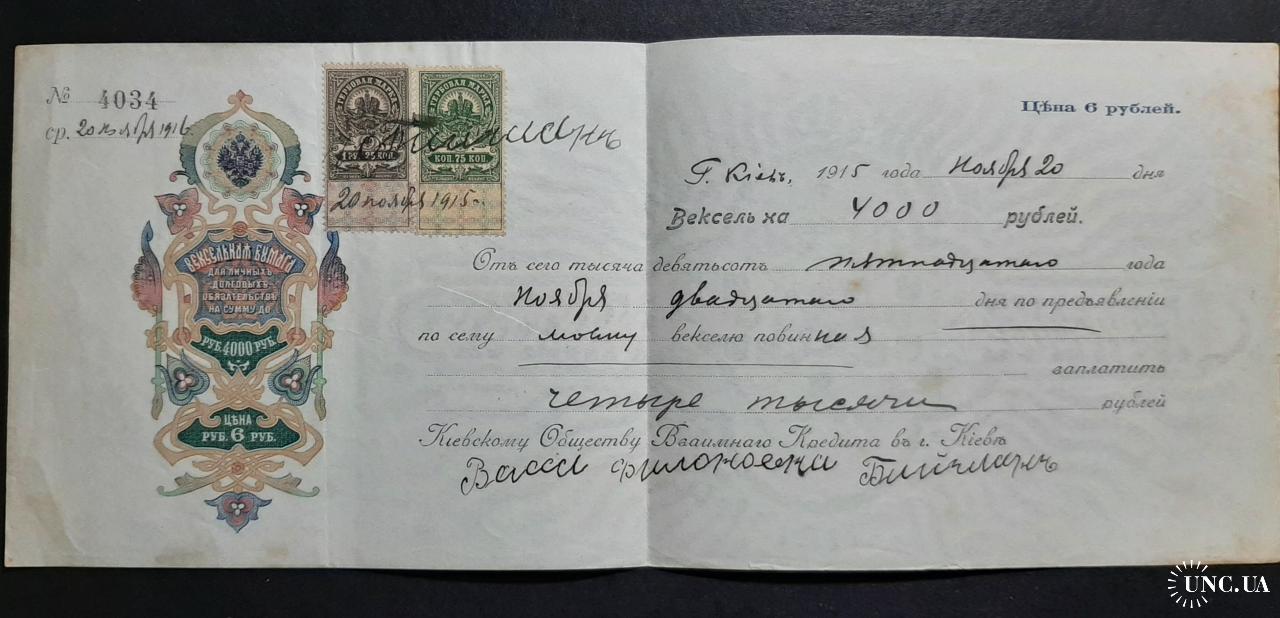 № 4034
ср. 20 ноября 1916
Цѣна 6 рублей.
ГЕРБОВАЯ МАРКА
1 РУ. 25 КОП.
ГЕРБОВАЯ МАРКА
КОП. 75 КОП.
20 ноября 1915
Г. Кіевъ, 1915 года Ноября 20 дня
Вексель на 4000 рублей.
Отъ сего тысяча девятьсотъ пятнадцатаго года
ноября двадцатаго дня по предъявленіи
по сему моему векселю повинная
заплатить
четыре тысячи рублей
Кіевскому Обществу Взаимнаго Кредита въ г. Кіевѣ
ВЕКСЕЛЬНАЯ БУМАГА
ДЛЯ ЛИЧНЫХЪ
ДОЛГОВЫХЪ
ОБЯЗАТЕЛЬСТВЪ
НА СУММУ ДО
РУБ. 4000 РУБ.
ЦѢНА
РУБ. 6 РУБ.
UNC.UA